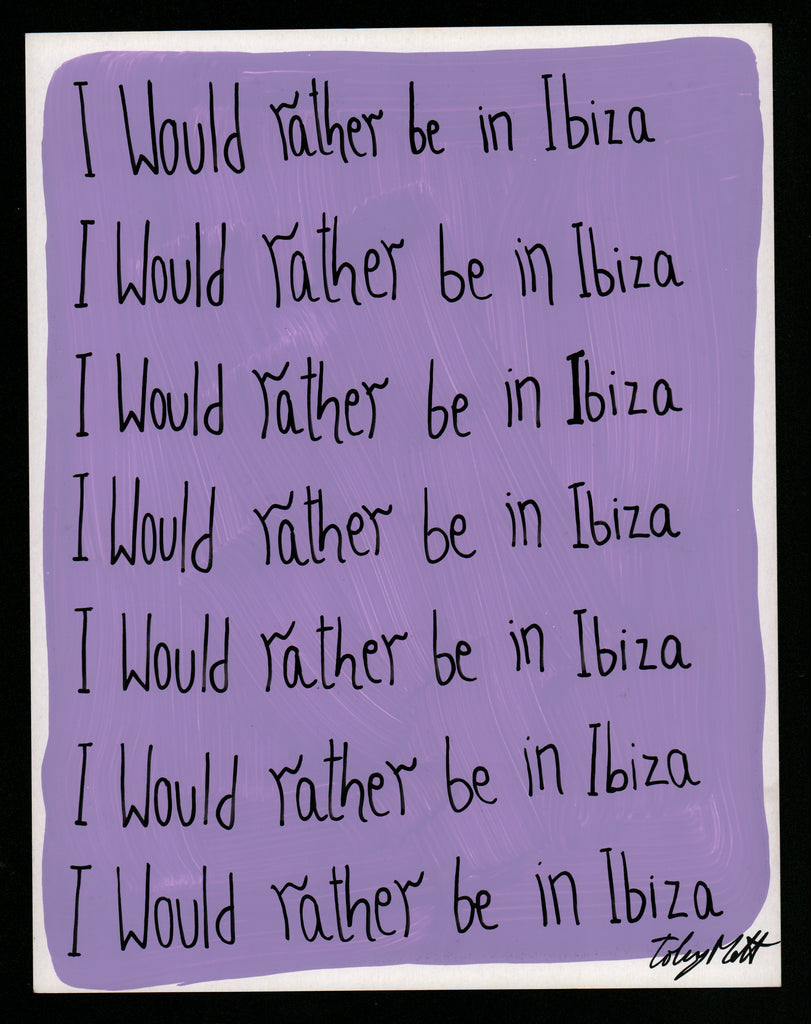 I Would rather be in Ibiza
I Would rather be in Ibiza
I Would rather be in Ibiza
I Would rather be in Ibiza
I Would rather be in Ibiza
I Would rather be in Ibiza
I Would rather be in Ibiza